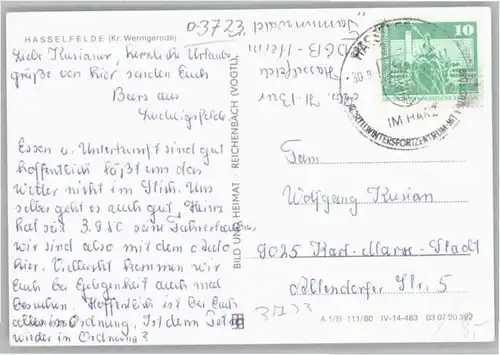 HASSELFELDE (Kr. Wernigerode)
Liebe Kusians, herzliche Urlaubs-
grüße von hier senden Euch
Beers aus
Ludwigsfelde
Essen u. Unterkunft sind gut
hoffentlich läßt uns das
Wetter nicht im Stich. Uns
selber geht es auch gut, Heinz
hat seit 3.9.80 seine Fahrerlaubnis
wir sind also mit dem Auto
hier. Vielleicht kommen wir
Euch bei Gelegenheit auch mal
besuchen. Hoffentlich ist bei Euch
alles in Ordnung. Ist denn
wieder in Ordnung?
BILD UND HEIMAT REICHENBACH (VOGTL)
03723
Hasselfelde
10
IM HARZ
Fam.
Wolfgang Kusian
9025 Karl-Marx-Stadt
Altendorfer Str. 5
A 1/B 111/80 IV-14-483 03 07 20 392